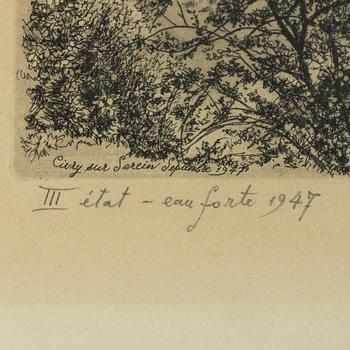 Civry sur Serein Septembre 1947
III état - eau forte 1947